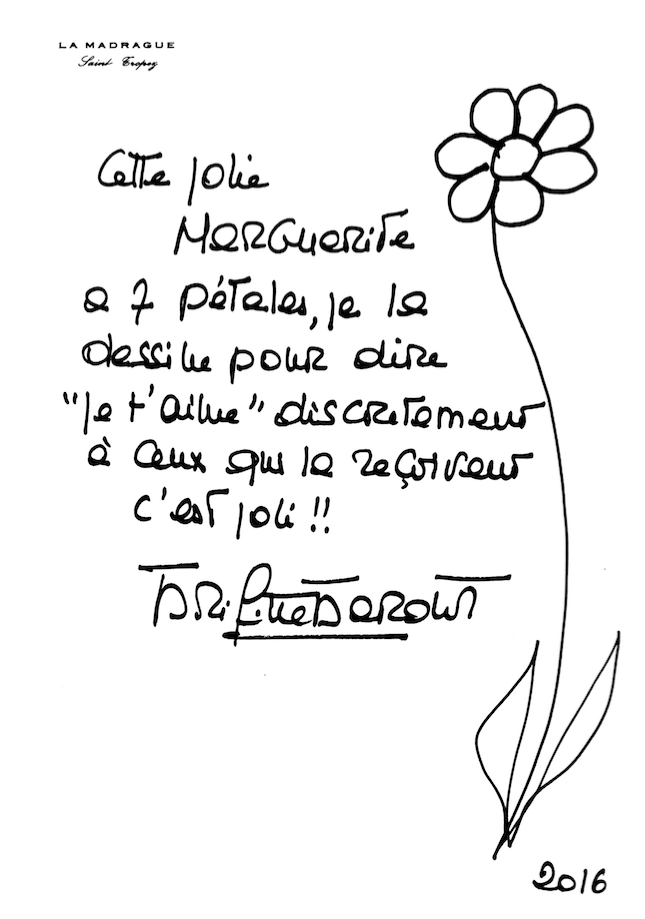 LA MADRAGUE
Saint Tropez
Cette jolie
Marguerite
a 7 pétales, je la
dessine pour dire
"je t'aime" discretement
à ceux qui la reçoivent
c'est joli !!
Brigitte Bardot
2016